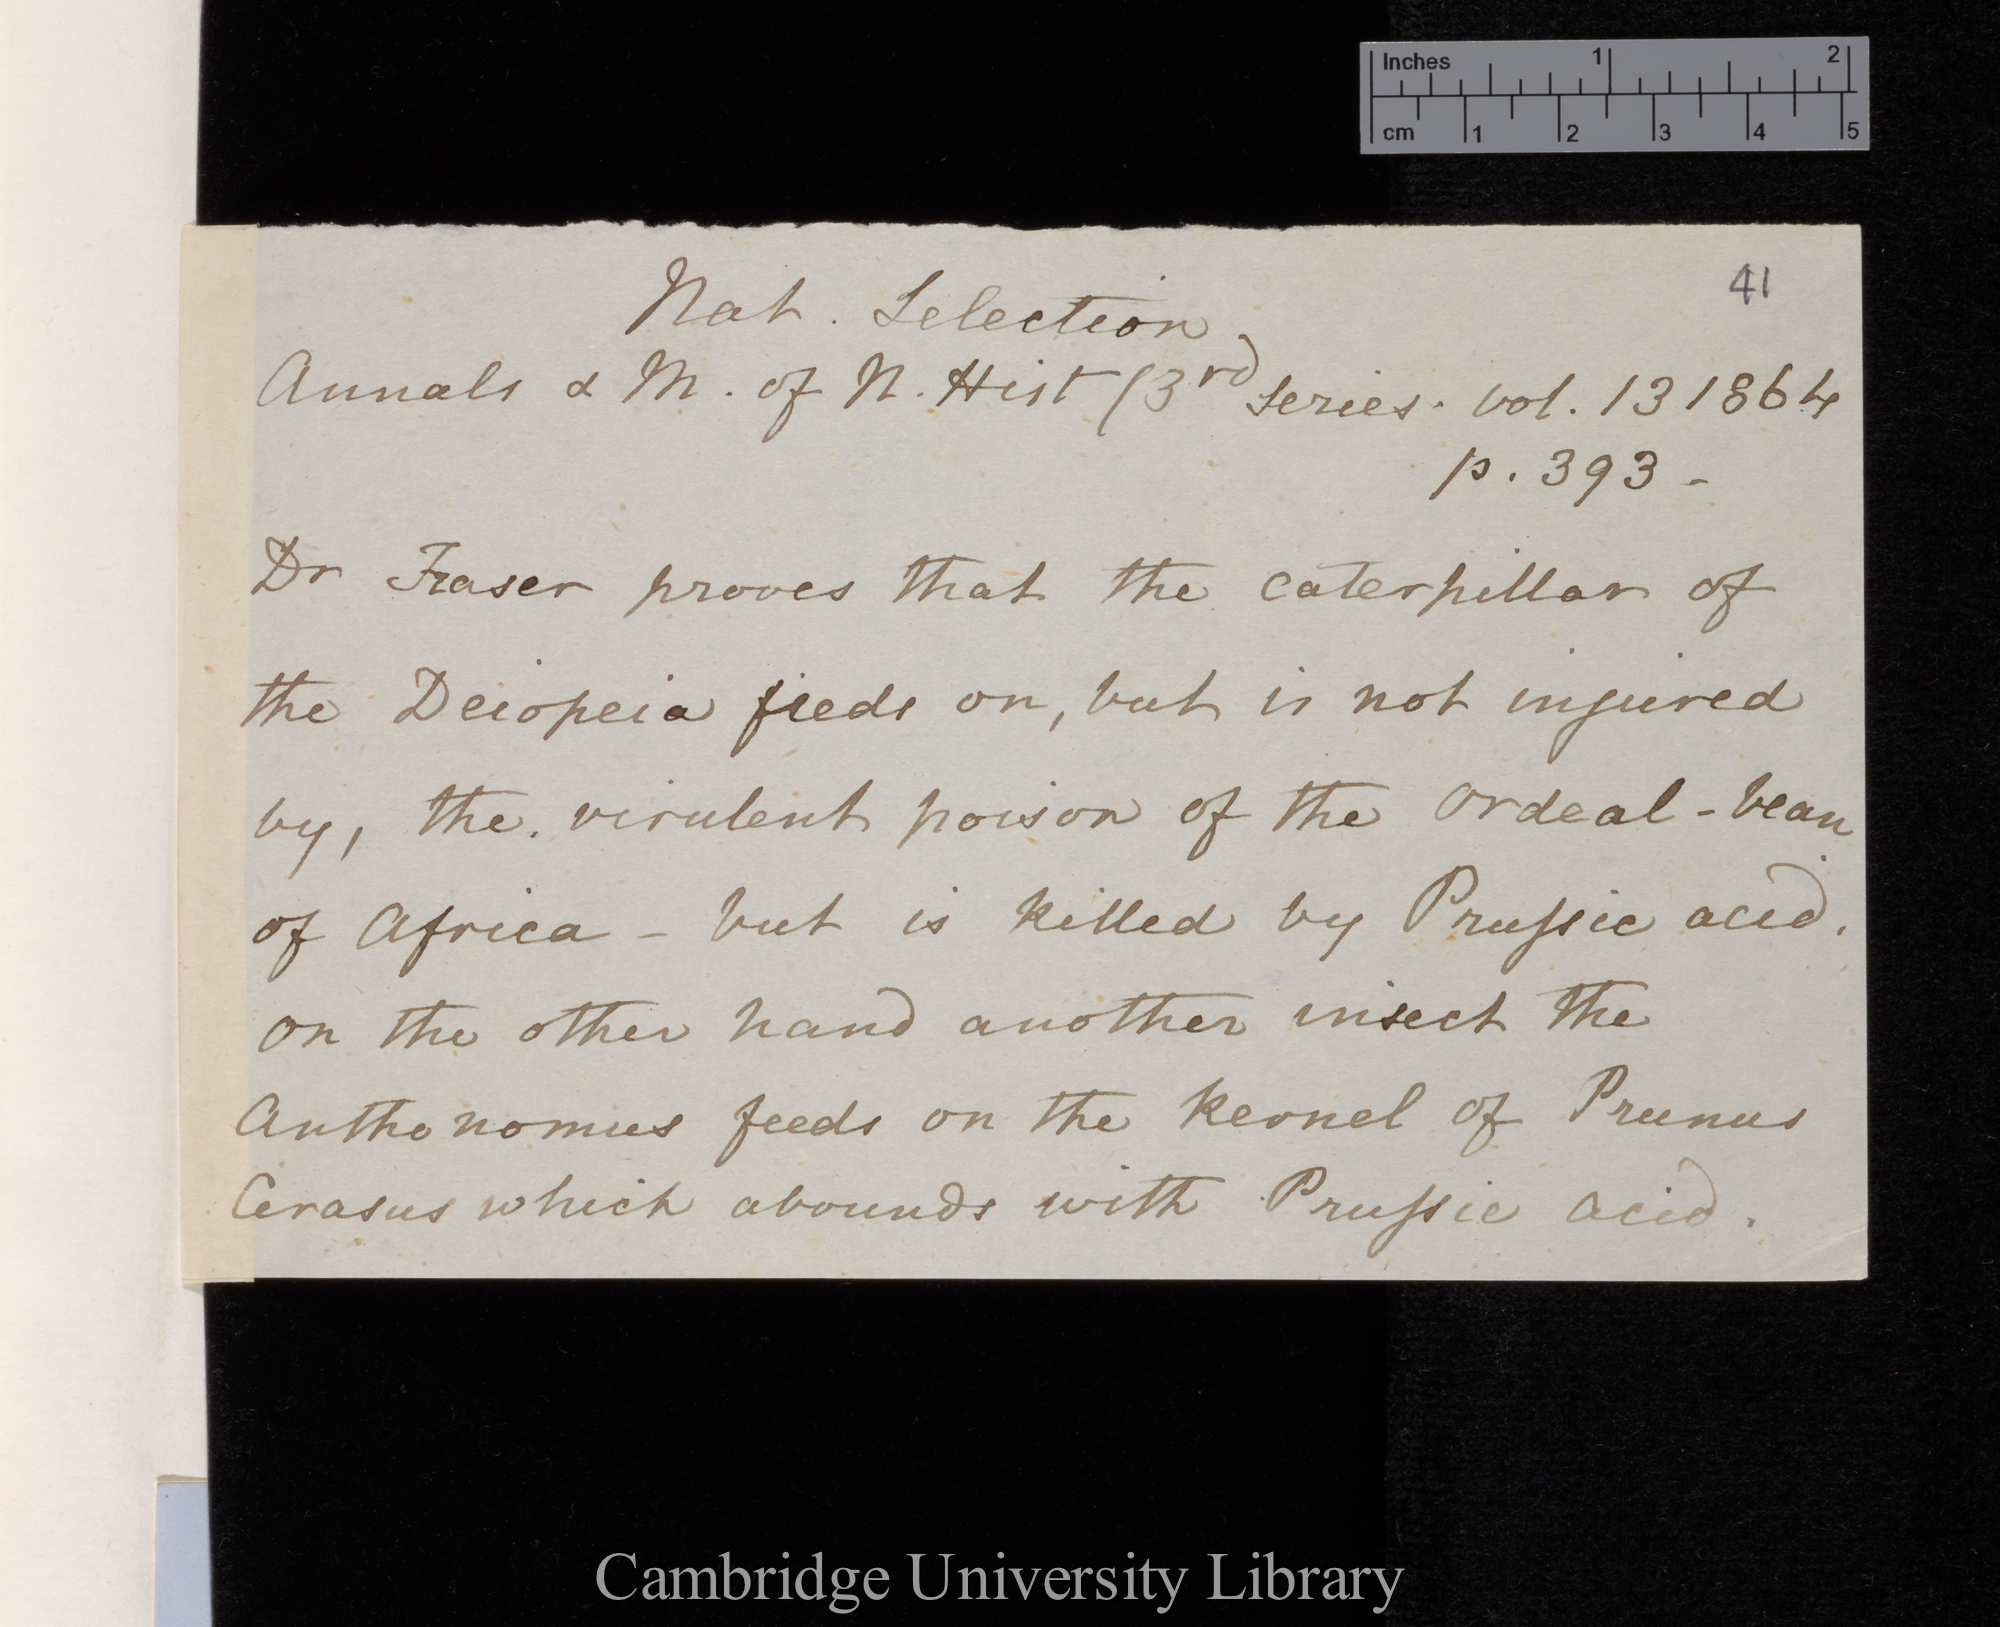 Inches 1 2
cm 1 2 3 4 5
41
Nat. Selection
Annals & M. of N. Hist (3rd series. vol. 13 1864
p. 393 -
Dr Fraser proves that the caterpillar of
the Deiopeia feeds on, but is not injured
by, the virulent poison of the Ordeal-bean
of Africa - but is killed by Prussic acid.
On the other hand another insect the
Anthonomus feeds on the kernel of Prunus
Cerasus which abounds with Prussic acid.
Cambridge University Library